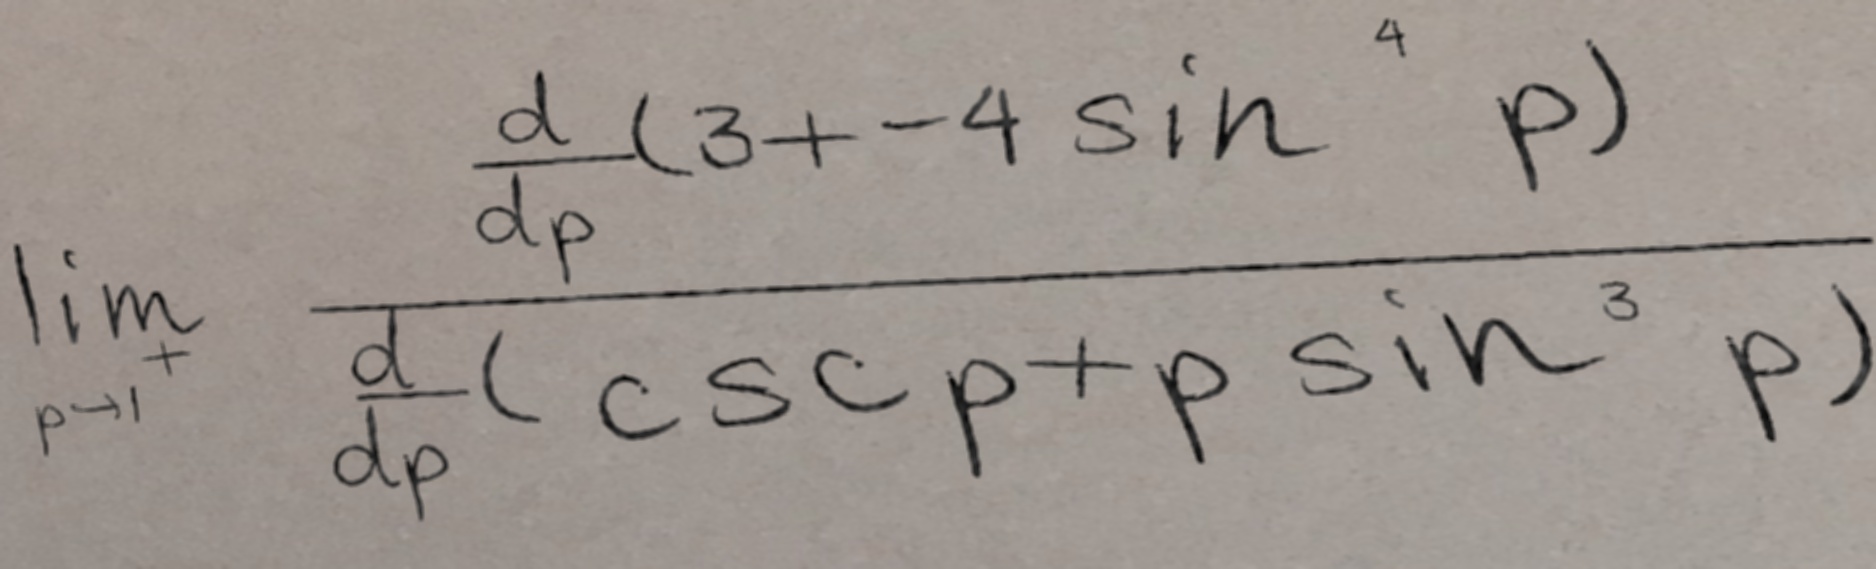 \lim_{p \to 1^+} \frac{\frac{d}{dp}(3+-4\sin^4 p)}{\frac{d}{dp}(\csc p+p\sin^3 p)}